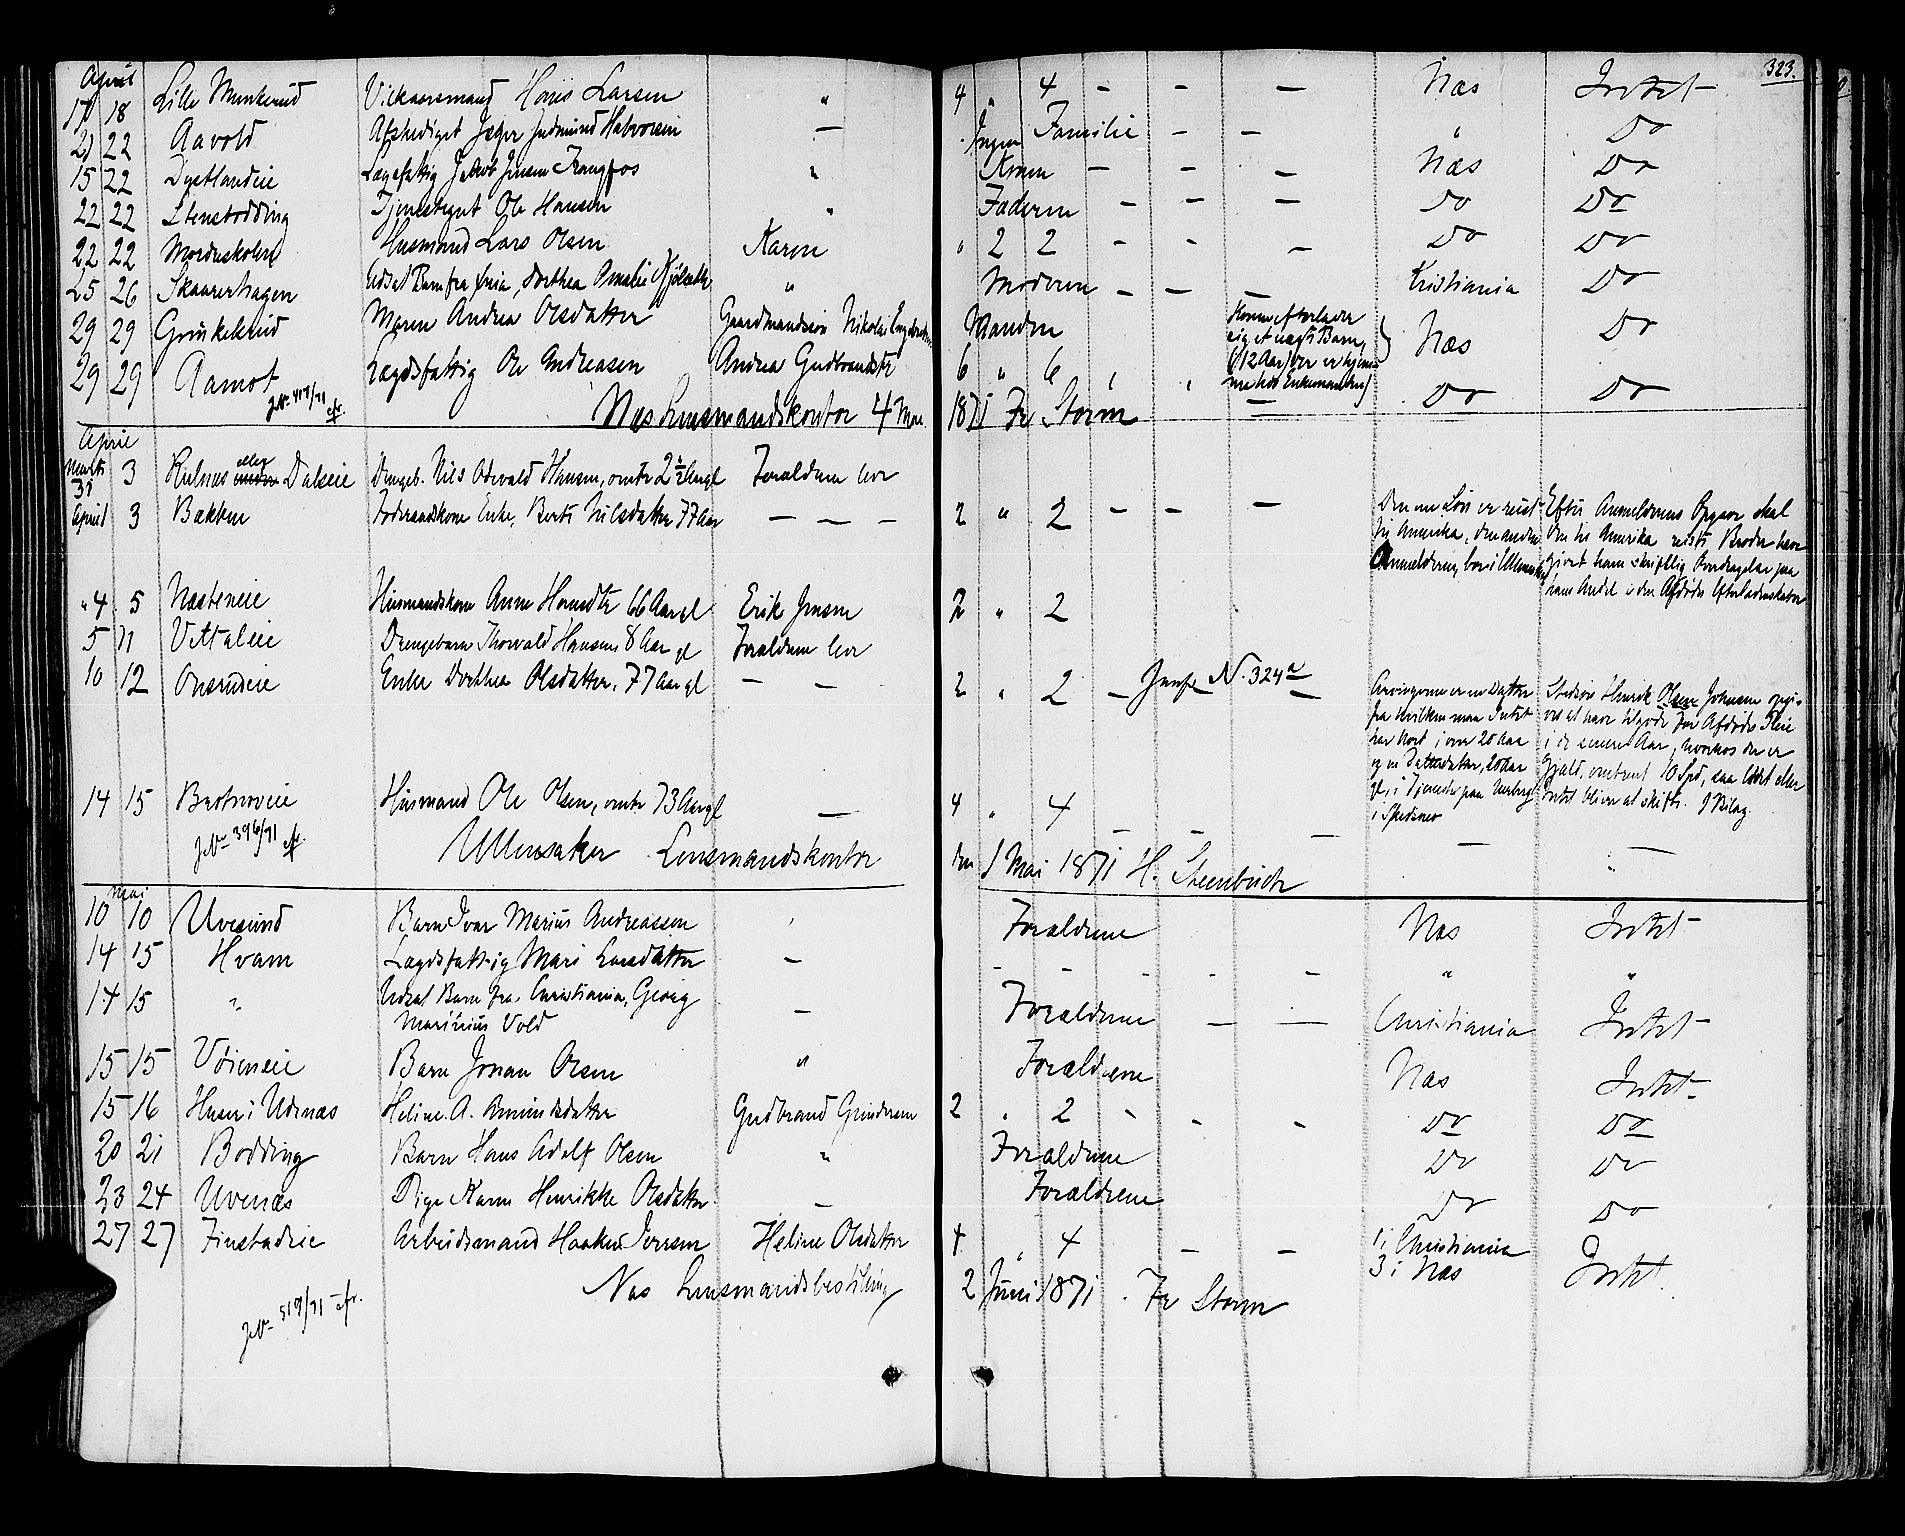 323.
April
17 18 Lille Munkerud Vilkaarsmand Hans Larsen " 4 " 4 - - - Næs Intet
21 22 Aavold Afskediget Jæger Gudmund Halvorsen — Ingen Familie - - " Do
15 22 Dystlandeie Lægsfattig Jakob Jensen " Konen - - - Næs Do
22 22 Stensrodding Tjenestegut Ole Hansen " Faderen - - - Do Do
22 22 Husmand Lars Olsen Karen " 2 2 - - - Do Do
25 26 Skaarerhagen Udsat Barn fra Xnia, Dorthea Amalie " Moderen - - - Kristiania Do
29 29 Maren Andrea Olsdatter Gaardmandssøn Nikolai Manden Konen efterlader
eig et uægte Barn,
(12 Aar) der er hjem-
me hos Enkemanden) Næs Do
29 29 Aamot Lægdsfattig Ole Andreasen Andrea Gudbrandsdtr 6 " 6 - Do Do
JNr 417/71 cfr.
Næs Lensmandskontor 4 Mai 1871 Fr Storm
April
Marts
31 3 Hulnæs eller under Dalseie Drengeb. Nils Odevald Hansen, omtr 2½ Aargl Forældrene lever
April
1 3 Bakken Foderaadskone Enke, Berte Nilsdatter 77 Aar — — — 2 " 2 - - -
Den ene Søn er reist
til Amerika, den anden
Anmelderen, bor i Ullensaker
Efter Anmelderens Opgave skal
den til Amerika reiste Broder have
givet ham skriftlig Overdragelse paa
hans Andel i den Afdødes Efterladenskaber
" 4 5 Næsteneie Husmandskone Anne 66 Aar gl Erik Jensen 2 " 2
5 11 Drengebarn Thorvald Hansen 8 Aar gl Forældrene lever
10 12 Onsrudeie Enke Dorthea Olsdatter, 77 Aar gl — — 2 " 2 - Jevnfr N. 324 a —
Arvingerne er en Datter
fra hvilken man Intet
har hørt i over 20 Aar
og en Datterdatter, 20 Aar
gl, i Tjeneste paa
i Skedsmo
Stedsøn Henrik Olsen Johnsen opgi-
ves at have tilgode for Afdødes Pleie
i de senere Aar, hvorhos der er
Gjæld, omtrent 10 Spd, saa lidet eller
Intet bliver at skifte. 1 Bilag.
14 15 Husmand Ole Olsen, omtr 73 Aar gl — 4 " 4 - - - — —
JNr 396/71 cfr.
Ullensaker Lensmandskontor den 1 Mai 1871 H. Steenbuch
Maj
10 10 Uvesund Barn Ivar Marius Andreassen ' Forældrene Næs Intet
14 15 Hvam Lægdsfattig Mari Larsdatter — - - - - - " "
14 15 " Udsat Barn fra Christiania, Georg
Marinius Vold — Forældrene — — Christiania Intet
15 15 Barn Johan Olsen " Forældrene Næs Intet
15 16 Huser i Udenæs Heline A. Amundsdatter Gudbrand Gundersen 2 . 2 - - - Do Do
20 21 Bodding Barn Hans Adolf Olsen " Forældrene Do Do
23 24 Uvenæs Pige Karen Henrikke Olsdatter — Forældrene Do Do
27 27 Finstadeie Arbeidsmand Haaken Iversen Heline Olsdatter 4 " 4 - - 1 i Christiania
3 i Næs Intet.
Næs Lensmandsbestilling 2 Juni 1871. Fr Storm
JNr 519/71 cfr.